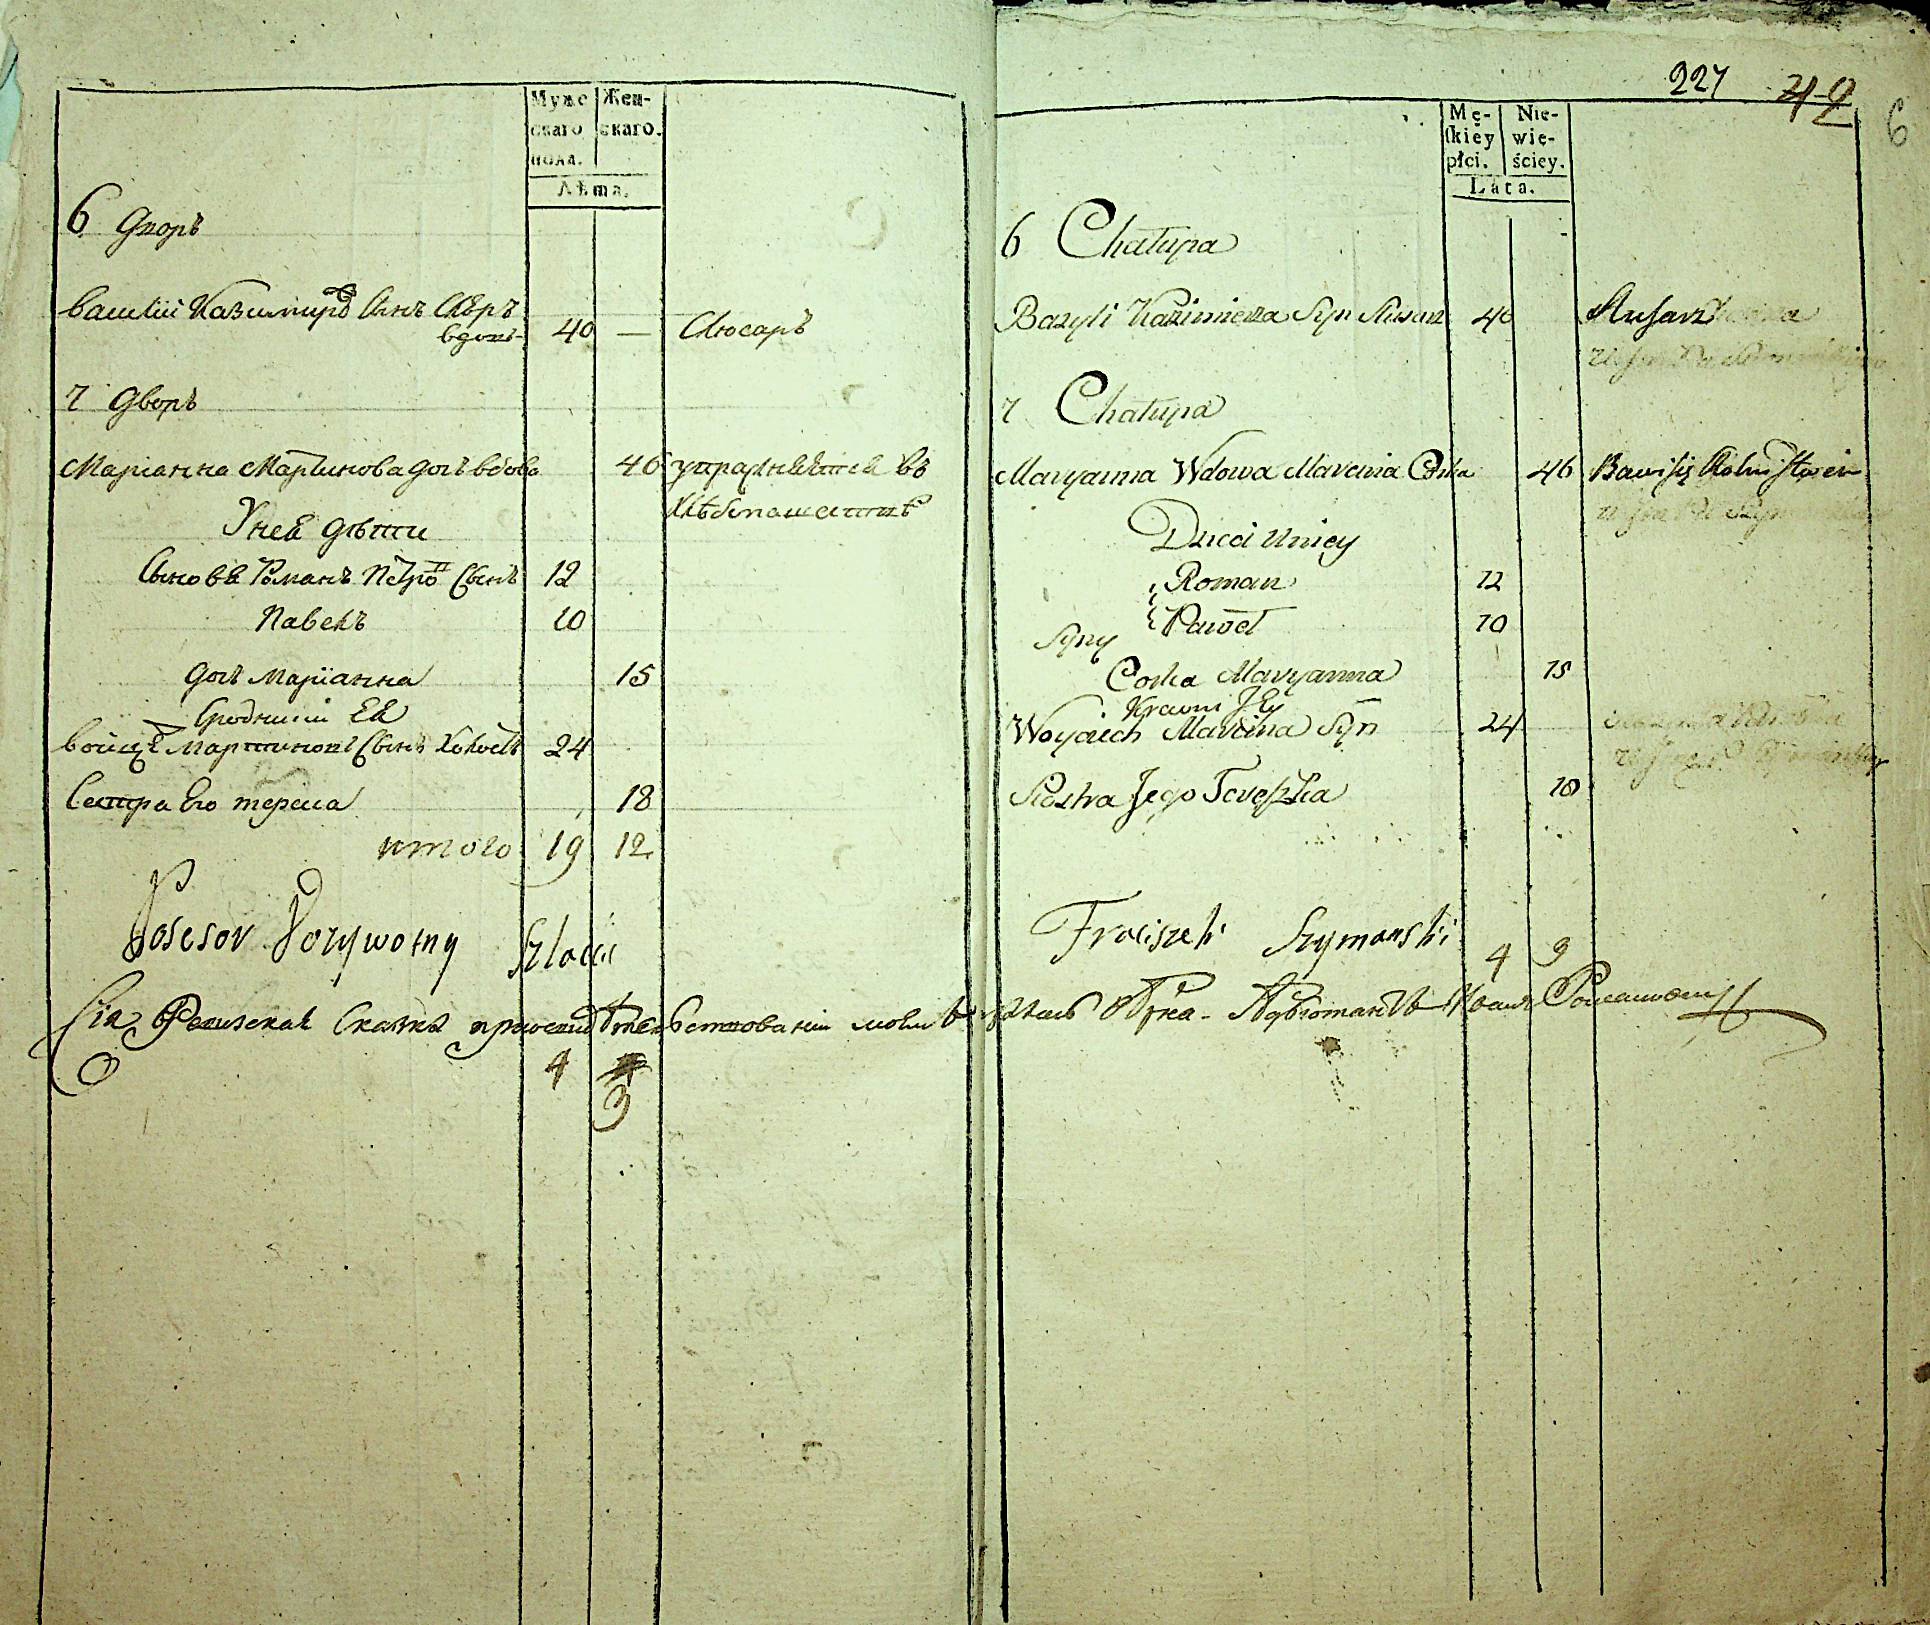 Муже
скаго
пола.
Жен-
скаго.
Лѣта.
6 дворъ
Василій Казимировъ Сынъ
вдовъ 40 — Слюсаръ
7 дворъ
Маріанна Мартинова дочь вдова 46 упражняется въ
хлѣбопашествѣ
У нея дѣти
Сыновья Романъ Петровъ Сынъ 12
Павелъ 10
дочь Маріанна 15
Сродники Ея
Войцѣхъ Мартиновъ Сынъ 24
Сестра Его тереса 18
итого 19 12
Posesor Dozywotny Szlachcic
Сія Ревизская Сказка
4
3
227 42
6
Mę-
skiey
płci.
Nie-
wię-
ściey.
Lata.
6 Chałupa
Bazyli Kazimierza Syn 40 Slusarz
7 Chałupa
Maryanna Wdowa Marcina Corka 46 Bawi się
Dzieci u niey
Roman 12
Paweł 10
Syny
Corka Maryanna 15
Krewni Jey
Woyciech Marcina Syn 24
Siostra Jego Tereszka 18
Franciszek Szymanski
4 3